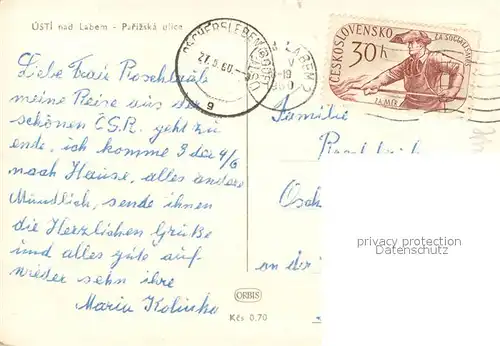 ÚSTÍ nad Labem - Pařížská ulice
OSCHERSLEBEN (BODE)
27.5.60
g
LABEM 2
V
-19
ČESKOSLOVENSKO
30h
ZA SOCIALISMUS
ZA MÍR
Liebe Frau
meine Reise aus der
schönen ČSR. geht zu
ende, ich komme 3 der 4/6
nach Hause, alles andere
Mündlich, sende ihnen
die Herzlichen Grüße
und alles gute auf
wieder sehn ihre
Maria
Familie
an der
privacy protection
Datenschutz
ORBIS
Kčs 0.70